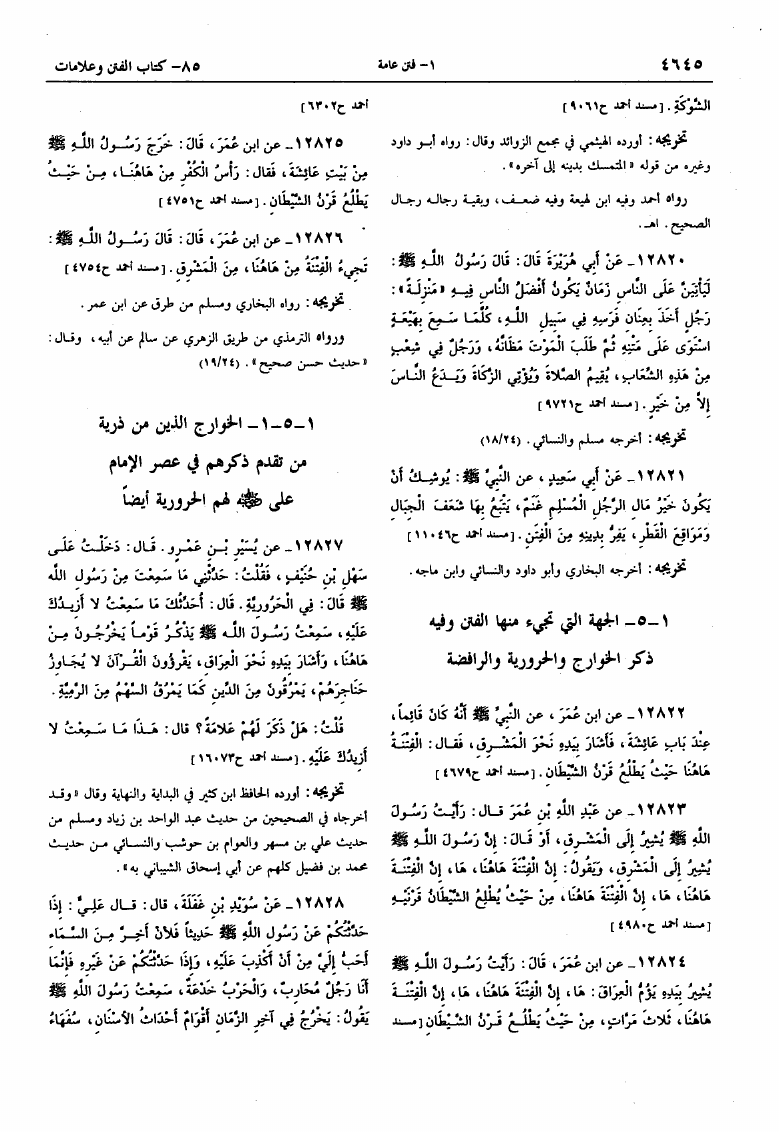 ٤٦٤٥
١- فتن عامة
٨٥- كتاب الفتن وعلامات
الشَّوْكَةِ. [مسند أحمد ح٩٠٦١]
تخريجه: أورده الهيثمي في مجمع الزوائد وقال: رواه أبو داود
وغيره من قوله «المتمسك بدينه إلى آخره».
رواه أحمد وفيه ابن لهيعة وفيه ضعف، وبقية رجاله رجال
الصحيح. اهـ.
١٢٨٢٠- عَنْ أَبِي هُرَيْرَةَ قَالَ: قَالَ رَسُولُ اللَّهِ ﷺ:
لَيَأْتِيَنَّ عَلَى النَّاسِ زَمَانٌ يَكُونُ أَفْضَلُ النَّاسِ فِيهِ «مَنْزِلَةً»:
رَجُلٍ أَخَذَ بِعِنَانِ فَرَسِهِ فِي سَبِيلِ اللَّهِ، كُلَّمَا سَمِعَ بِهَيْعَةٍ
اسْتَوَى عَلَى مَتْنِهِ ثُمَّ طَلَبَ الْمَوْتَ مَظَانَّهُ، وَرَجُلٌ فِي شِعْبٍ
مِنْ هَذِهِ الشِّعَابِ، يُقِيمُ الصَّلاةَ وَيُؤْتِي الزَّكَاةَ وَيَدَعُ النَّاسَ
إِلاَّ مِنْ خَيْرٍ. [مسند أحمد ح٩٧٢١]
تخريجه: أخرجه مسلم والنسائي. (١٨/٢٤)
١٢٨٢١- عَنْ أَبِي سَعِيدٍ، عن النَّبِيِّ ﷺ: يُوشِكُ أَنْ
يَكُونَ خَيْرُ مَالِ الرَّجُلِ الْمُسْلِمِ غَنَمٌ، يَتَّبِعُ بِهَا شَعَفَ الْجِبَالِ
وَمَوَاقِعَ الْقَطْرِ، يَفِرُّ بِدِينِهِ مِنَ الْفِتَنِ. [مسند أحمد ح١١٠٤٦]
تخريجه: أخرجه البخاري وأبو داود والنسائي وابن ماجه.
١-٥- الجهة التي تجيء منها الفتن وفيه
ذكر الخوارج والحرورية والرافضة
١٢٨٢٢- عن ابن عُمَرَ، عن النَّبِيِّ ﷺ أَنَّهُ كَانَ قَائِماً،
عِنْدَ بَابِ عَائِشَةَ، فَأَشَارَ بِيَدِهِ نَحْوَ الْمَشْرِقِ، فَقال: الْفِتْنَةُ
هَاهُنَا حَيْثُ يَطْلُعُ قَرْنُ الشَّيْطَانِ. [مسند أحمد ح٤٦٧٩]
١٢٨٢٣- عن عَبْدِ اللَّهِ بْنِ عُمَرَ قال: رَأَيْتُ رَسُولَ
اللَّهِ ﷺ يُشِيرُ إِلَى الْمَشْرِقِ، أَوْ قَالَ: إِنَّ رَسُولَ اللَّهِ ﷺ
يُشِيرُ إِلَى الْمَشْرِقِ، وَيَقُولُ: إِنَّ الْفِتْنَةَ هَاهُنَا، هَا، إِنَّ الْفِتْنَةَ
هَاهُنَا، هَا، إِنَّ الْفِتْنَةَ هَاهُنَا، مِنْ حَيْثُ يُطْلِعُ الشَّيْطَانُ قَرْنَيْهِ
[مسند أحمد ح٤٩٨٠]
١٢٨٢٤- عن ابن عُمَرَ، قَالَ: رَأَيْتُ رَسُولَ اللَّهِ ﷺ
يُشِيرُ بِيَدِهِ يَؤُمُّ الْعِرَاقَ: هَا، إِنَّ الْفِتْنَةَ هَاهُنَا، هَا، إِنَّ الْفِتْنَةَ
هَاهُنَا، ثَلاثَ مَرَّاتٍ، مِنْ حَيْثُ يَطْلُعُ قَرْنُ الشَّيْطَانِ [مسند
أحمد ح٦٣٠٢]
١٢٨٢٥- عن ابن عُمَرَ، قَالَ: خَرَجَ رَسُولُ اللَّهِ ﷺ
مِنْ بَيْتِ عَائِشَةَ، فَقال: رَأْسُ الْكُفْرِ مِنْ هَاهُنَا، مِنْ حَيْثُ
يَطْلُعُ قَرْنُ الشَّيْطَانِ. [مسند أحمد ح٤٧٥١]
١٢٨٢٦- عن ابن عُمَرَ، قَالَ: قَالَ رَسُولُ اللَّهِ ﷺ:
تَجِيءُ الْفِتْنَةُ مِنْ هَاهُنَا، مِنَ الْمَشْرِقِ. [مسند أحمد ح٤٧٥٤]
تخريجه: رواه البخاري ومسلم من طرق عن ابن عمر.
ورواه الترمذي من طريق الزهري عن سالم عن أبيه، وقال:
«حديث حسن صحيح». (١٩/٢٤)
١-٥-١- الخوارج الذين من ذرية
من تقدم ذكرهم في عصر الإمام
علي ﷺ لهم الحرورية أيضاً
١٢٨٢٧- عن يُسَيْرِ بْنِ عَمْرٍو. قال: دَخَلْتُ عَلَى
سَهْلِ بْنِ حُنَيْفٍ، فَقُلْتُ: حَدِّثْنِي مَا سَمِعْتَ مِنْ رَسُولِ اللَّه
ﷺ قَالَ: فِي الْحَرُورِيَّةِ. قال: أُحَدِّثُكَ مَا سَمِعْتُ لا أَزِيدُكَ
عَلَيْهِ، سَمِعْتُ رَسُولَ اللَّه ﷺ يَذْكُرُ قَوْماً يَخْرُجُونَ مِنْ
هَاهُنَا، وَأَشَارَ بِيَدِهِ نَحْوَ الْعِرَاقِ، يَقْرَؤُونَ الْقُرْآنَ لا يُجَاوِزُ
حَنَاجِرَهُمْ، يَمْرُقُونَ مِنَ الدِّينِ كَمَا يَمْرُقُ السَّهْمُ مِنَ الرَّمِيَّةِ.
قُلْتُ: هَلْ ذَكَرَ لَهُمْ عَلامَةً؟ قال: هَذَا مَا سَمِعْتُ لا
أَزِيدُكَ عَلَيْهِ. [مسند أحمد ح١٦٠٧٣]
تخريجه: أورده الحافظ ابن كثير في البداية والنهاية وقال «وقد
أخرجاه في الصحيحين من حديث عبد الواحد بن زياد ومسلم من
حديث علي بن مسهر والعوام بن حوشب والنسائي من حديث
محمد بن فضيل كلهم عن أبي إسحاق الشيباني به».
١٢٨٢٨- عَنْ سُوَيْدِ بْنِ غَفَلَةَ، قال: قال عَلِيٌّ: إِذَا
حَدَّثْتُكُمْ عَنْ رَسُولِ اللَّهِ ﷺ حَدِيثاً فَلأَنْ أَخِرَّ مِنَ السَّمَاءِ
أَحَبُّ إِلَيَّ مِنْ أَنْ أَكْذِبَ عَلَيْهِ، وَإِذَا حَدَّثْتُكُمْ عَنْ غَيْرِهِ فَإِنَّمَا
أَنَا رَجُلٌ مُحَارِبٌ، وَالْحَرْبُ خَدْعَةٌ، سَمِعْتُ رَسُولَ اللَّهِ ﷺ
يَقُولُ: يَخْرُجُ فِي آخِرِ الزَّمَانِ أَقْوَامٌ أَحْدَاثُ الأَسْنَانِ، سُفَهَاءُ